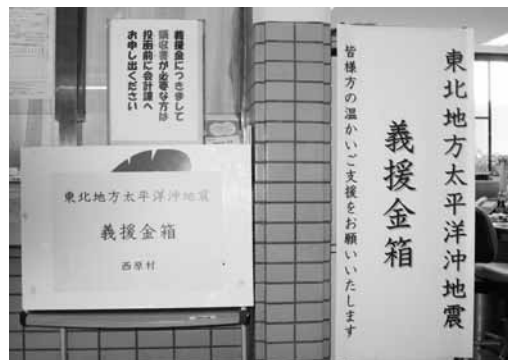 義援金につきまして
領収書が必要な方は
投函前に会計課へ
お申し出ください
東北地方太平洋沖地震
義援金箱
西原村
東北地方太平洋沖地震
義援金箱
皆様方の温かいご支援をお願いいたします